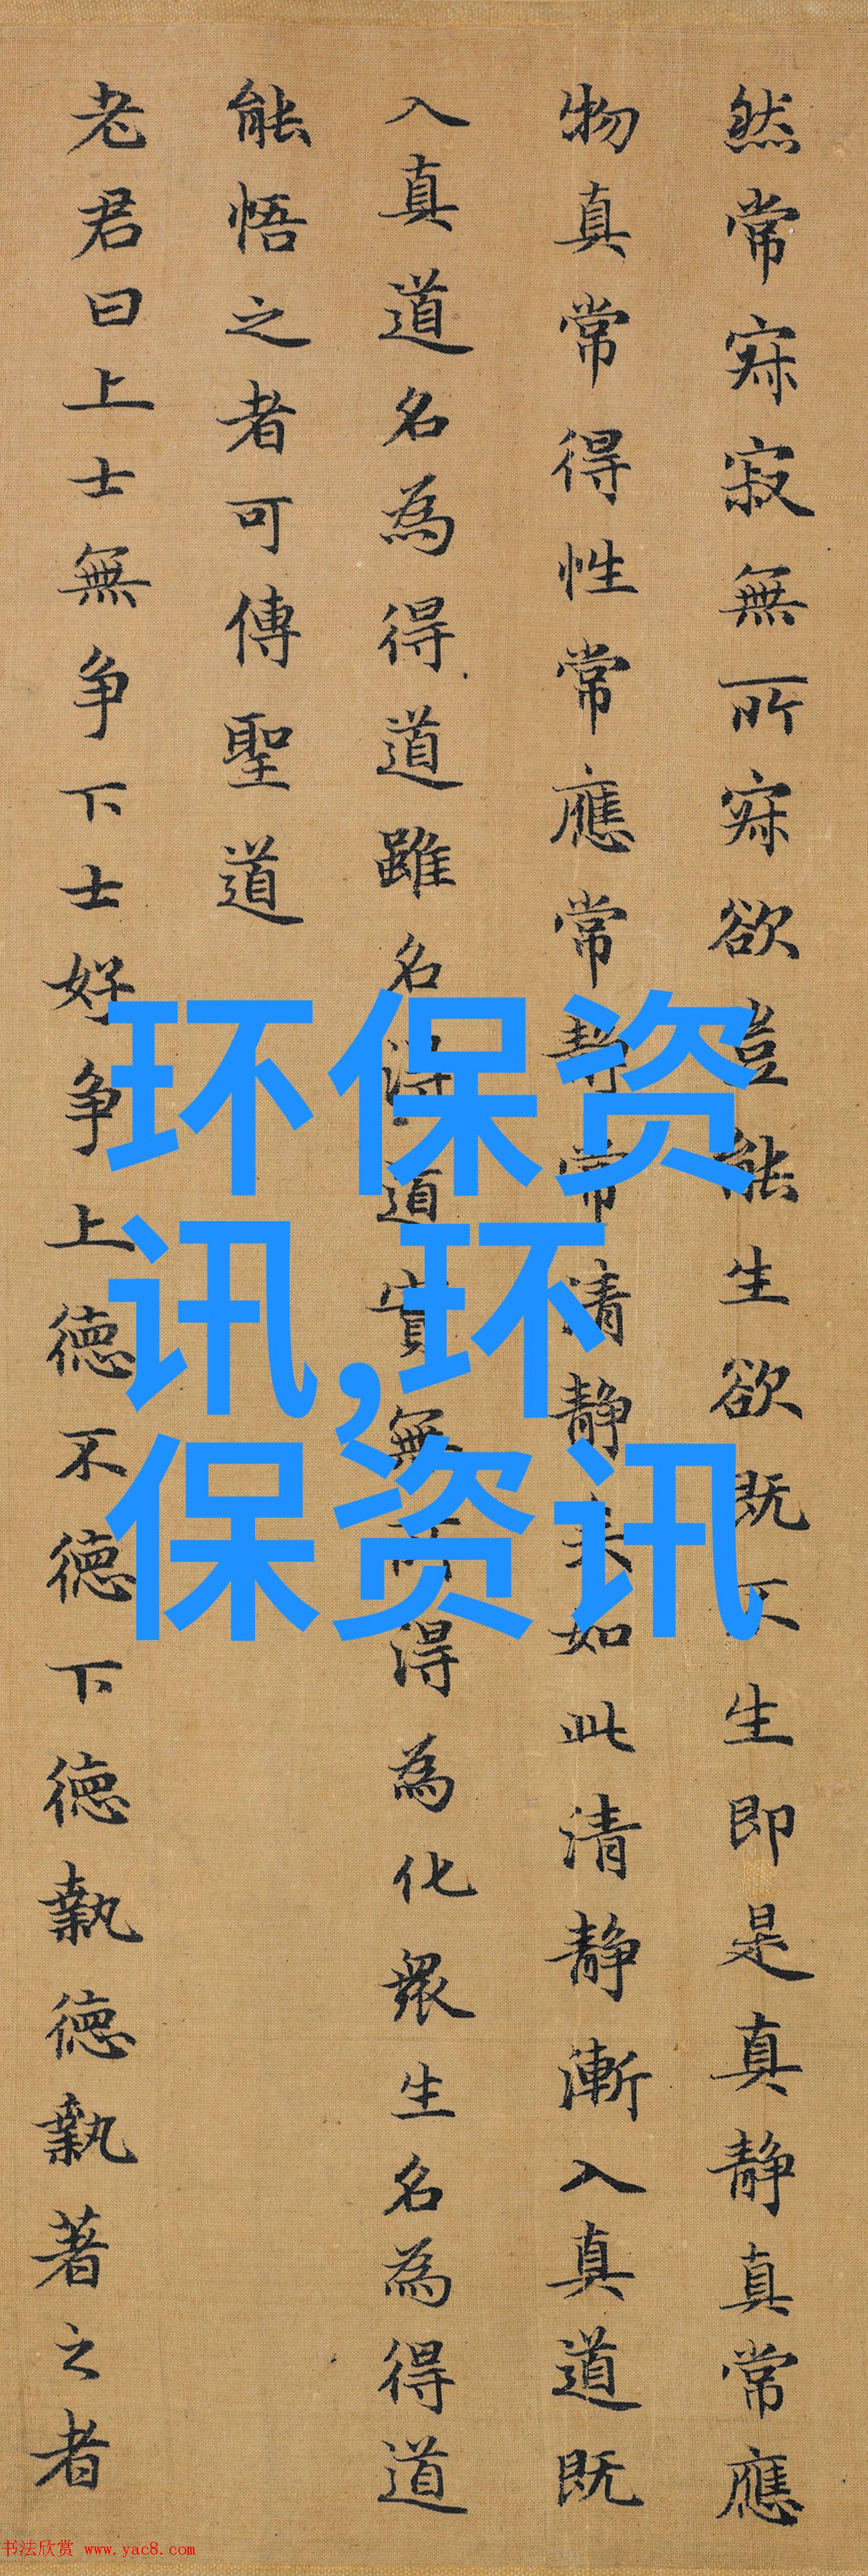 然常寂寂無所寂欲豈能生欲既不生即是真静真常應
物真常得性常應常静常清静矣如此清静漸入真道既
入真道名為得道雖名得道實無所得為化衆生名為得道
能悟之者可傳聖道
老君曰上士無争下士好争上德不德下德執德執著之者
环保资
讯,环
保资讯
书法欣赏 www.yac8.com